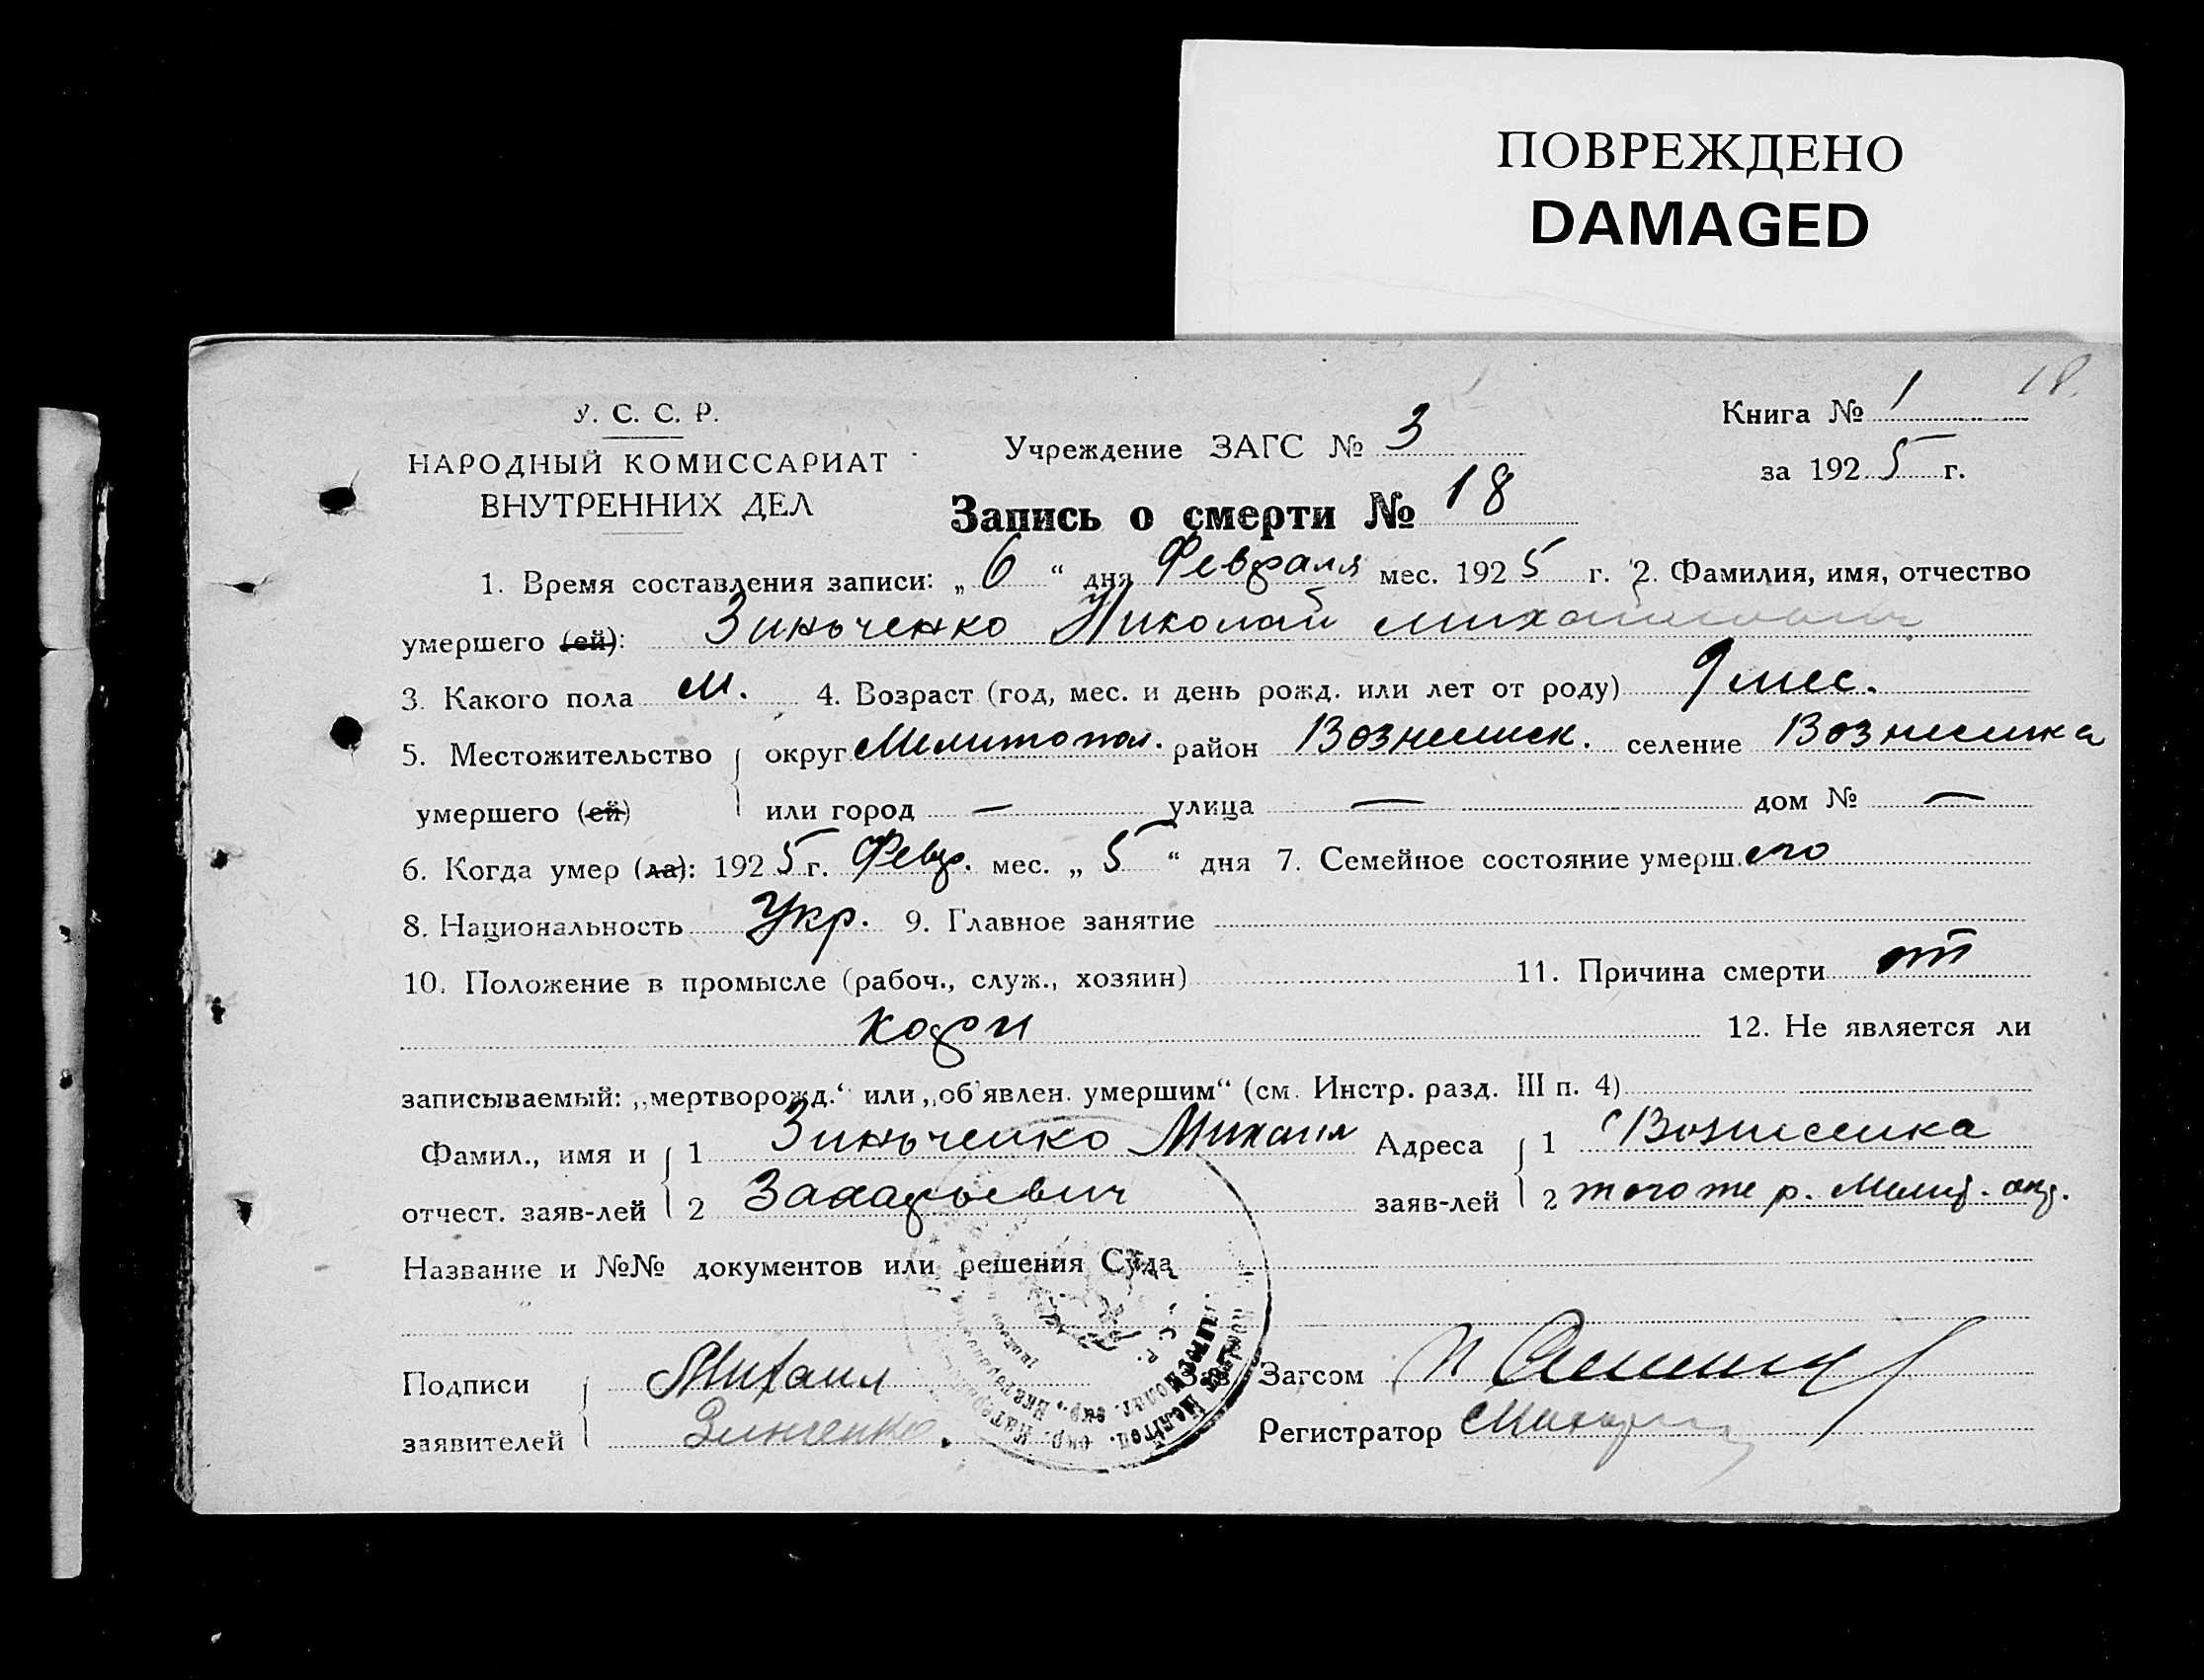 ПОВРЕЖДЕНО
DAMAGED
18.
У. С. С. Р.
НАРОДНЫЙ КОМИССАРИАТ
ВНУТРЕННИХ ДЕЛ
Учреждение ЗАГС № 3
Книга № 1
за 1925 г.
Запись о смерти № 18
1. Время составления записи: „6“ дня Февраля мес. 1925 г. 2. Фамилия, имя, отчество
умершего (ей): Зиньченко Николай Михайлович
3. Какого пола М. 4. Возраст (год, мес. и день рожд. или лет от роду) 9 мес.
5. Местожительство округ Мелитопол. район Вознесенск. селение Вознесенка
умершего (ей) или город — улица — дом № —
6. Когда умер (ла): 1925 г. Февр. мес. „5“ дня 7. Семейное состояние умерш. его
8. Национальность Укр. 9. Главное занятие
10. Положение в промысле (рабоч., служ., хозяин) 11. Причина смерти от
кори 12. Не является ли
записываемый: „мертворожд.“ или „об'явлен. умершим“ (см. Инстр. разд. III п. 4)
Фамил., имя и 1 Зиньченко Михаил Адреса 1 с Вознесенка
отчест. заяв-лей 2 Захарьевич заяв-лей 2 того же р. Мелит. окр.
Название и №№ документов или решения Суда
Подписи Михаил Зав Загсом
заявителей Зинченко. Регистратор